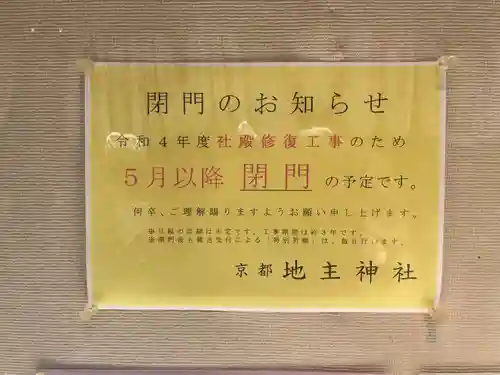 閉門のお知らせ
令和4年度社殿修復工事のため
5月以降 閉門 の予定です。
何卒、ご理解賜りますようお願い申し上げます。
工事期間は約3年です。
による「特別祈願」は、毎日行います。
京都 地主神社